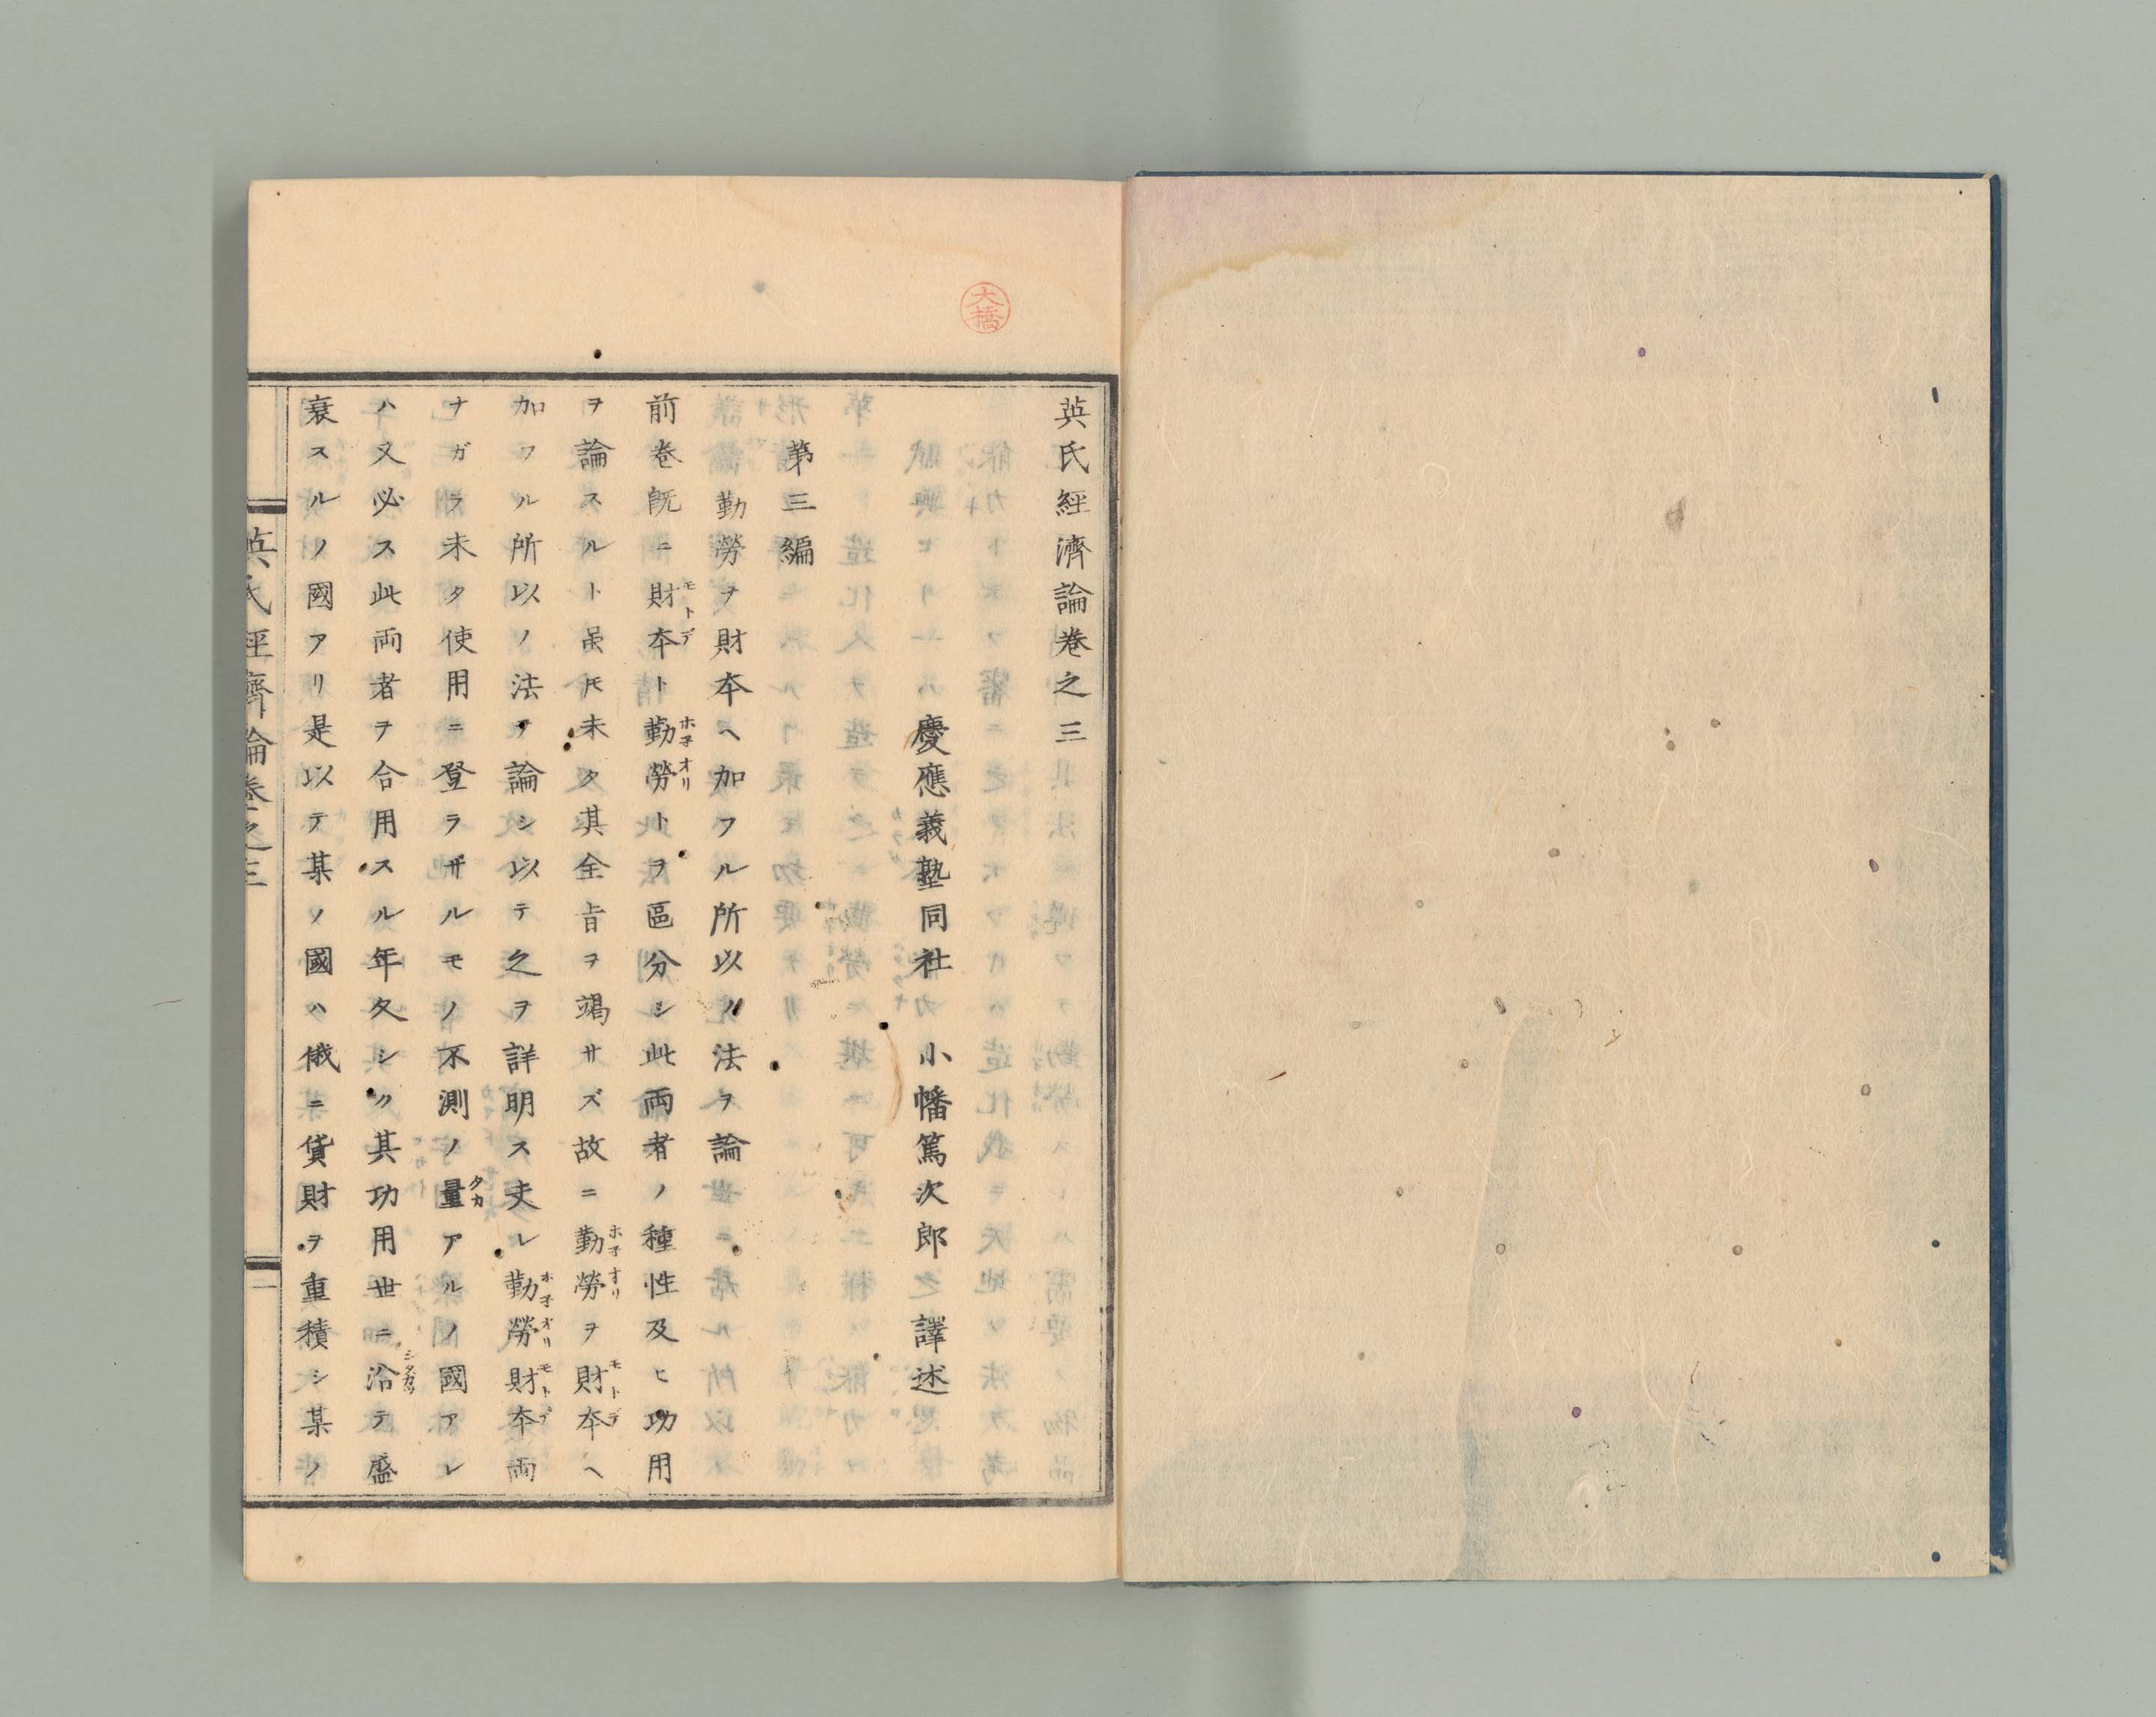 英氏經濟論卷之三
慶應義塾同社 小幡篤次郎 譯述
第三編
勤勞ヲ財本ヘ加フル所以ノ法ヲ論
前卷既ニ財本ト勤勞トヲ區分シ此両者ノ種性及ヒ功用
モトデ
ホ子オリ
ヲ論スルト虽𪜈未タ其全旨ヲ竭サズ故ニ勤勞ヲ財本ヘ
ホ子オリ
モトデ
加フル所以ノ法ヲ論シ以テ之ヲ詳明ス夫レ勤勞財本両
ホ子オリ
モトデ
ナガラ未タ使用ニ登ラザルモノ不測ノ量アルノ國アレ
タカ
ハ又必ス此両者ヲ合用スル年久シク其功用世ニ洽テ盛
衰スルノ國アリ是以テ某ノ國ハ俄ニ貨財ヲ重積シ某ノ
英氏經濟論卷之三
一
大橋